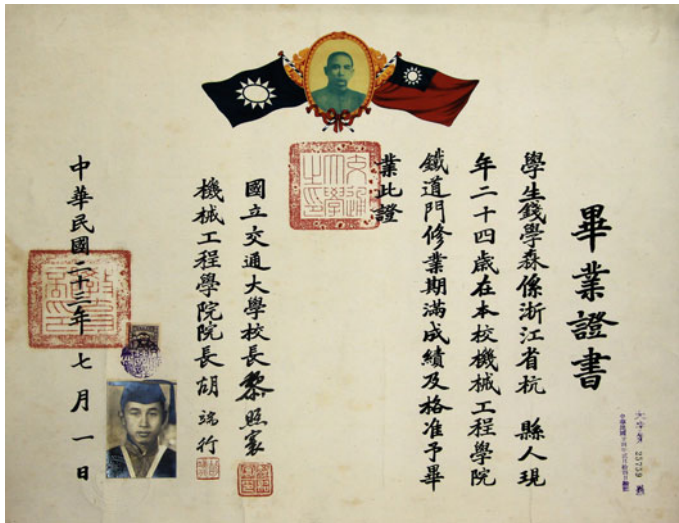 畢業證書
學生錢學森係浙江省杭 縣人現
年二十四歲在本校機械工程學院
鐵道門修業期滿成績及格准予畢
業此證
國立交通大學校長黎照寰
機械工程學院院長胡端行
中華民國二十三年七月一日
交通大學之印
教育部印
大字第 25759 號